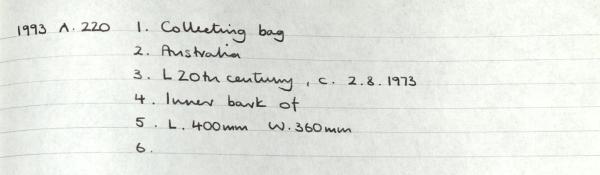 1993 A.220 1. Collecting bag
2. Australia
3. L 20th century, c. 2.8.1973
4. Inner bark of
5. L. 400mm W. 360mm
6.